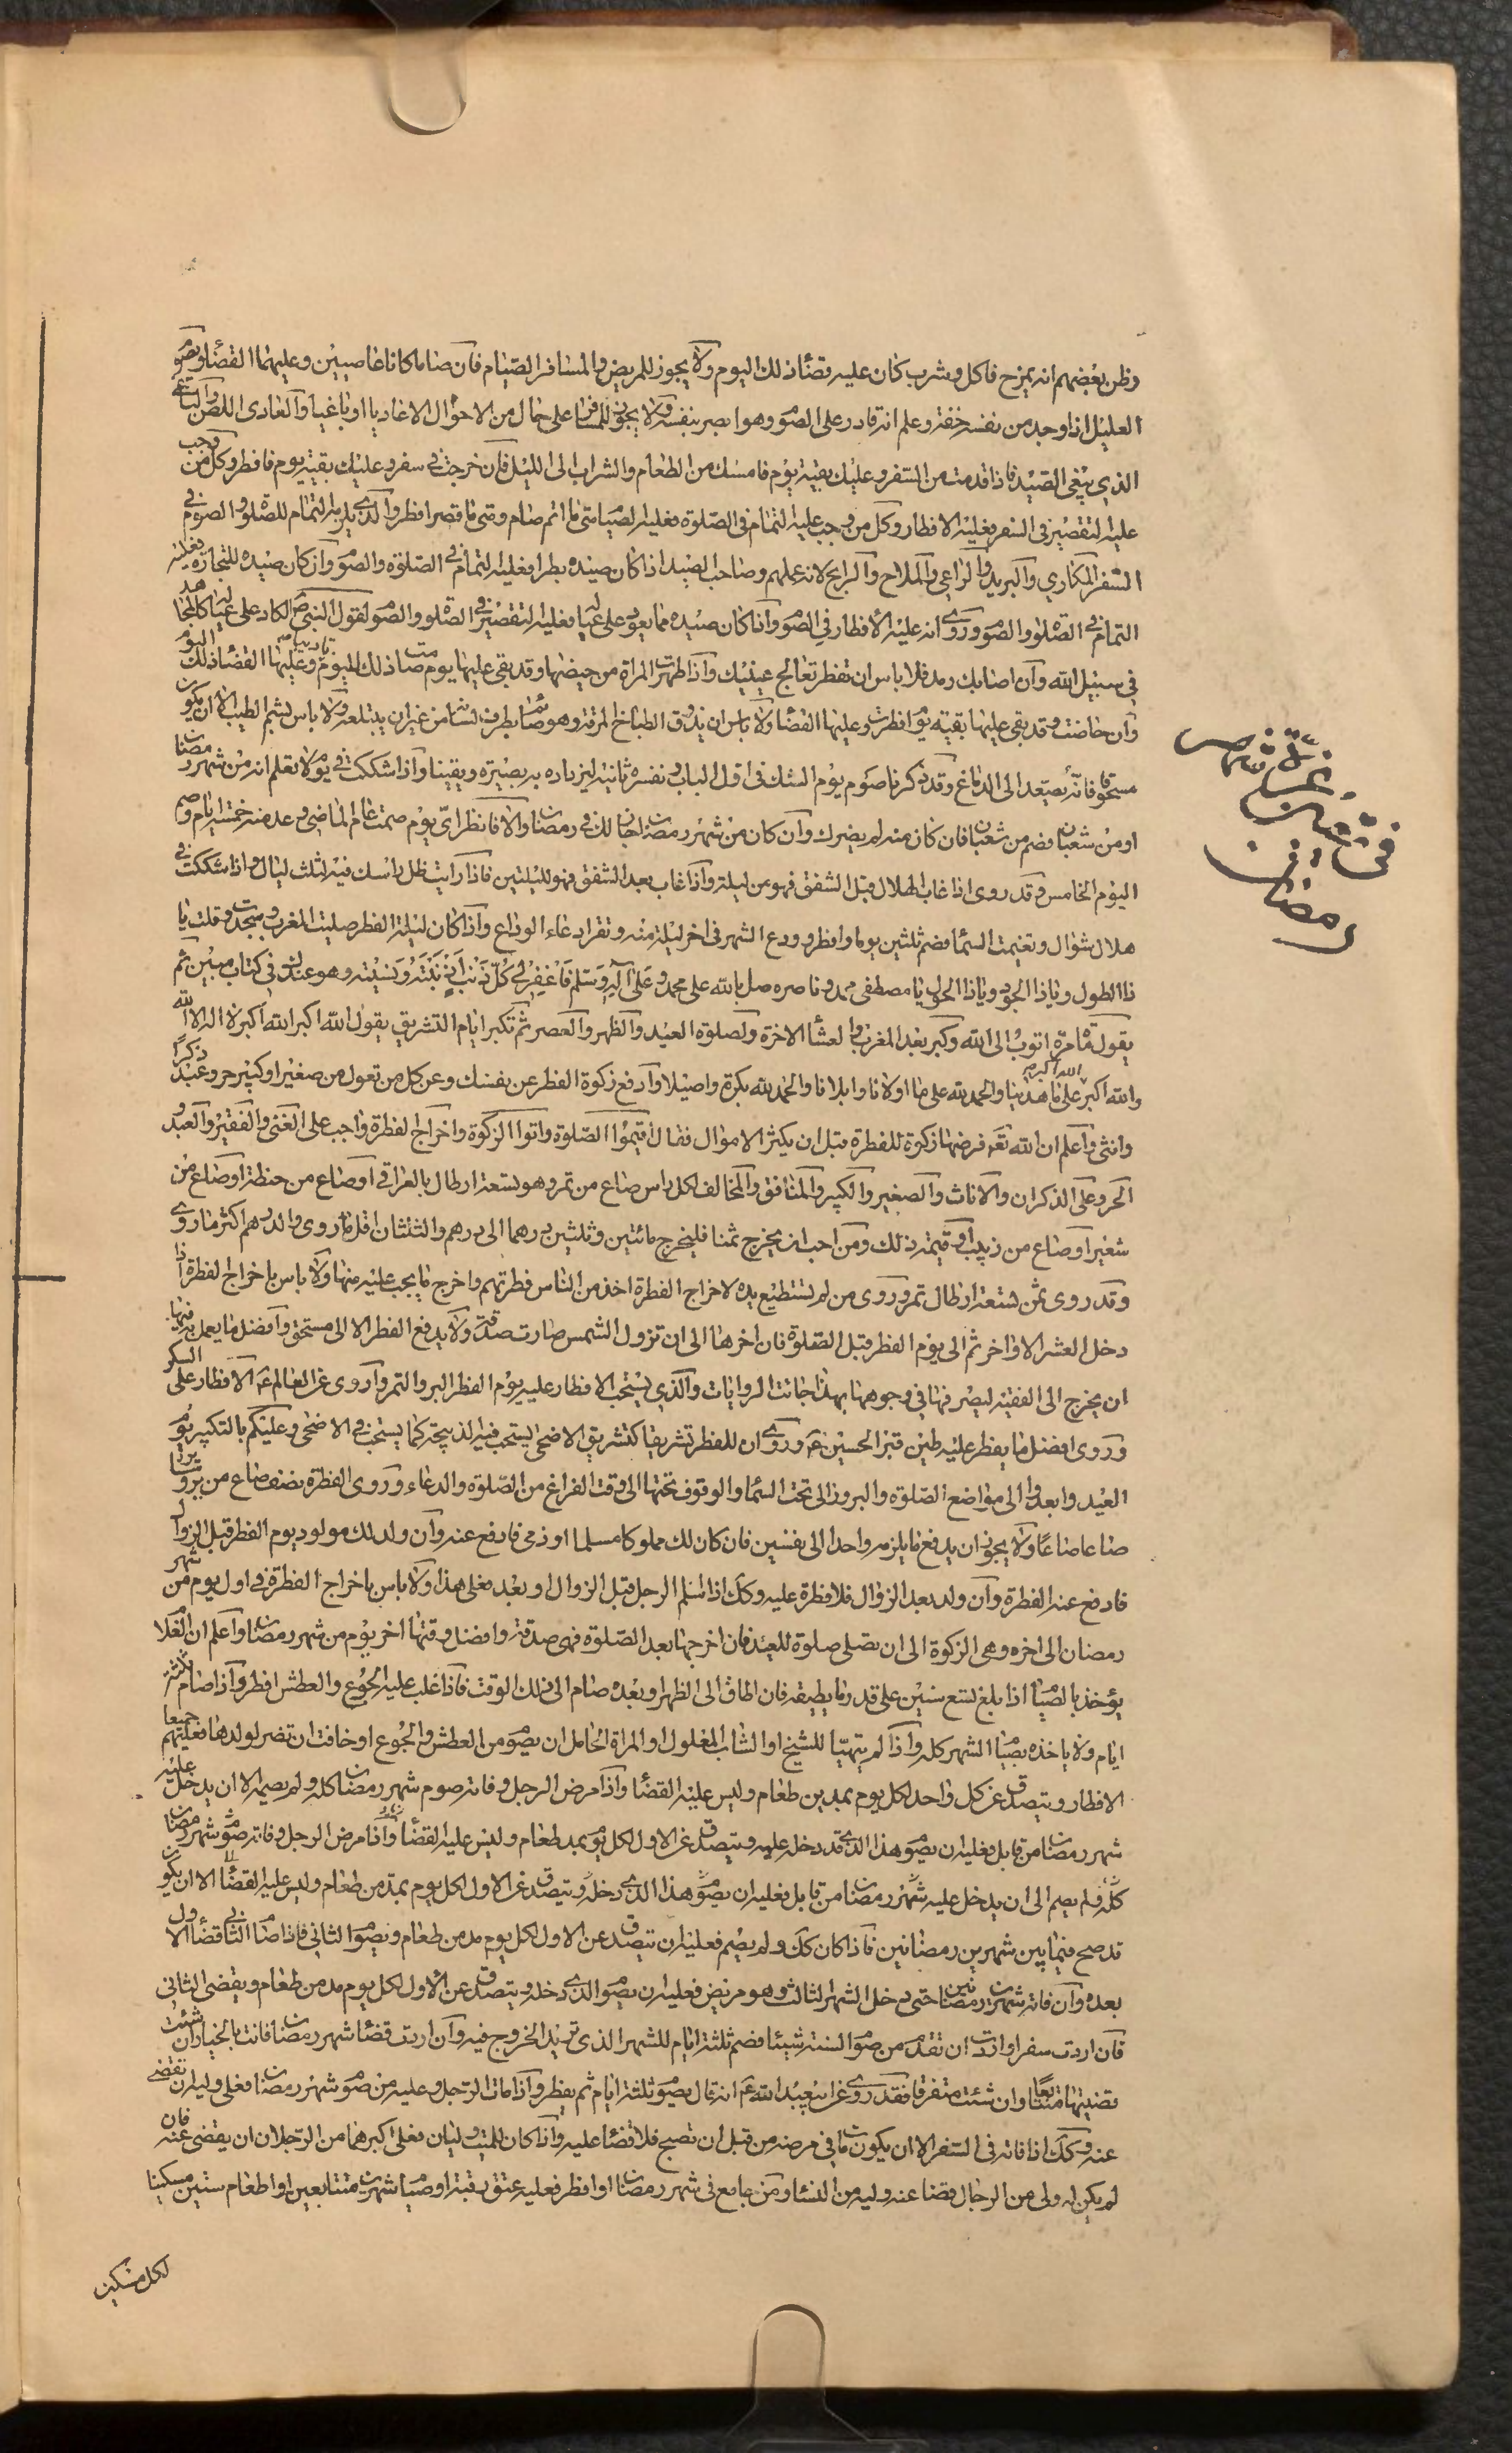 وظن بعضهم انه يمزح فاكل وشرب كان عليه قضاء ذلك اليوم ولا يجوز للمريض والمسافر الصيام فان صاما كانا عاصيين وعليهما القضاء ويصوم
العليل اذا وجد من نفسه خفة وعلم انه قادر على الصوم وهو ابصر بنفسه ولا يجوز للمسافر على حال من الاحوال الا عاديا او باغيا والعادى اللص والباغى
الذي يبغي الصيد فاذا قدمت من السفر وعليك بقية يوم فامسك من الطعام والشراب الى الليل فان خرجت في سفر وعليك بقية يوم فافطر وكل من وجب
عليه التقصير في السفر فعليه الافطار وكل من وجب عليه التمام في الصلوة فعليه الصيام متى ما اتم صام ومتى ما قصر افطر والذي يلزمه التمام للصلوة والصوم في
السفر المكاري والبريد والراعي والملاح والرابح لانه عملهم وصاحب الصيد اذا كان صيده بطرا فعليه التمام في الصلوة والصوم وان كان صيده للتجارة فعليه
التمام في الصلوة والصوم وروي انه عليه الافطار في الصوم واذا كان صيده مما يعود على عياله فعليه التقصير في الصلوة والصوم لقول النبي ص الكاد على عياله كالمجاهد
في سبيل الله وان اصابك رمد فلا باس ان تفطر تعالج عينيك واذا طهرت المراة من حيضها وقد بقى عليها يوم صامت ذلك اليوم تاديبا وعليها القضاء ذلك اليوم
وان حاضت وقد بقى عليها بقية يوم افطرت وعليها القضاء ولا باس ان يذوق الطباخ المرقة وهو صائم بطرف لسانه من غير ان يبتلعه ولا باس بشم الطيب الا ان يكون
مسحوقا فانه يصعد الى الدماغ وقد ذكرنا صوم يوم الشك في اول الباب ونفسره ثانية ليزداد به بصيرة ويقينا واذا شككت في يوم لا تعلم انه من شهر رمضان
او من شعبان فصم من شعبان فان كان منه لم يضرك وان كان من شهر رمضان جاز لك في رمضان والا فانظر اي يوم صمت عام الماضي وعد منه خمسة ايام وصم
اليوم الخامس وقد روى اذا غاب الهلال قبل الشفق فهو من ليلة واذا غاب بعد الشفق فهو لليلتين فاذا رايت ظل راسك فيه لثلث ليال واذا شككت في
هلال شوال وتغيمت السماء فصم ثلثين يوما وافطر وودع الشهر في اخر ليلة منه وتقرا دعاء الوداع واذا كان ليلة الفطر صليت المغرب وسجدت وقلت يا
ذا الطول ويا ذا الجود ويا ذا الحول يا مصطفى محمد وناصره صل يا الله على محمد وعلى آله وسلم فاغفر لي كل ذنب اذنبته ونسيته وهو عندك في كتاب مبين ثم
يقول مائة مرة اتوب الى الله وكبر بعد المغرب والعشاء الاخرة ولصلوة العيد والظهر والعصر ثم تكبر ايام التشريق يقول الله اكبر الله اكبر لا اله الا الله
والله اكبر الله اكبر على ما هدينا والحمد لله على ما اولانا وابلانا والحمد لله بكرة واصيلا وادفع زكوة الفطر عن نفسك وعن كل من تعول من صغير او كبير حر وعبد ذكرا
وانثى واعلم ان الله تعه فرضها زكوة للفطرة قبل ان يكثر الاموال فقال اقيموا الصلوة واتوا الزكوة واخراج الفطرة واجب على الغنى والفقير والعبد و
الحر وعلى الذكران والاناث والصغير والكبير والمنافق والمخالف لكل راس صاع من تمر وهو تسعة ارطال بالعراقي او صاع من حنطة او صاع من
شعير او صاع من زبيب او قيمة ذلك ومن احب ان يخرج ثمنا فليخرج مائتين وثلثين درهما الى درهم والثلثان اقل ما روى والدرهم اكثر ما روي
وقد روى ثمن تسعة ارطال تمر وروى من لم تستطيع يده لاخراج الفطرة اخذ من الناس فطرتهم واخرج ما يجب عليه منها ولا باس باخراج الفطرة اذا
دخل العشر الاواخر ثم الى يوم الفطر قبل الصلوة فان اخرها الى ان تزول الشمس صارت صدقة ولا يدفع الفطر الا الى مستحق وافضل ما يعمل به فيها
ان يخرج الى الفقيه ليصرفها في وجوهها بهذا جائت الروايات والذي يستحب الافطار عليه يوم الفطر البر والتمر واروى عن العالم ع الافطار على السكر
وروى افضل ما يفطر عليه طين قبر الحسين ع وروي ان للفطر تشريقا كتشريق الاضحى يستحب فيه الذبيحة كما يستحب في الاضحى وعليكم بالتكبير يوم
العيد وابعدوا الى مواضع الصلوة والبروز الى تحت السماء والوقوف تحتها الى وقت الفراغ من الصلوة والدعاء وروى الفطرة نصف صاع من بر وساير
صاعا صاعا ولا يجوز ان يدفع ما يلزمه واحدا الى نفسين فان كان لك مملوكا مسلما او ذمي فادفع عنه وان ولد لك مولود يوم الفطر قبل الزوال
فادفع عنه الفطرة وان ولد بعد الزوال فلا فطرة عليه وكك اذا اسلم الرجل قبل الزوال او بعد فعلى هذا ولا باس باخراج الفطرة في اول يوم من شهر
رمضان الى اخره وهي الزكوة الى ان تصلى صلوة للعيد فان اخرجها بعد الصلوة فهي صدقة وافضل وقتها اخر يوم من شهر رمضان واعلم ان الغلام
يؤخذ بالصيام اذا بلغ تسع سنين على قدر ما يطيقه فان اطاق الى الظهر او بعده صام الى ذلك الوقت فاذا غلب عليه الجوع والعطش افطر واذا صام ثلثة
ايام ولا ياخذه بصيام الشهر كله واذا لم يتهيا للشيخ او الشاب المعلول او المراة الحامل ان يصوم من العطش والجوع او خافت ان تضر لولدها فعليهم جميعا
الافطار ويتصدق عن كل واحد لكل يوم بمد من طعام وليس عليه القضاء واذا مرض الرجل وفاته صوم شهر رمضان كله ولم يصمه الا ان يدخل عليه
شهر رمضان من قابل فعليه ان يصوم هذا الذي قد دخل عليه ويتصدق عن الاول لكل يوم بمد طعام وليس عليه القضاء واذا مرض الرجل وفاته صوم شهر رمضان
كله فلم يصم الى ان يدخل عليه شهر رمضان من قابل فعليه ان يصوم هذا الذي دخله ويتصدق عن الاول لكل يوم بمد من طعام وليس عليه القضاء الا ان يكون
قد صح فيما بين شهرين رمضانين فاذا كان كك ولم يصم فعليه ان يتصدق عن الاول لكل يوم مد من طعام ويصوم الثاني فاذا صام الثاني قضا الاول
بعده وان فاته شهرين رمضانين حتى دخل الشهر الثالث وهو مريض فعليه ان يصوم الذي دخله ويتصدق عن الاول لكل يوم مد من طعام ويقضى الثاني
فان اردت سفرا واردت ان تقدم من صوم السنة شيئا فصم ثلثة ايام للشهر الذي تريد الخروج فيه وان اردت قضاء شهر رمضان فانت بالخيار ان شئت
قضيتها متتابعا وان شئت متفرقا فقد روي عن ابيعبد الله ع انه قال يصوم ثلثة ايام ثم يفطر واذا مات الرجل وعليه من صوم شهر رمضان فعلى وليه ان تقضي
عنه وكك اذا فاته في السفر الا ان يكون مات في مرضه من قبل ان تصبح فلا قضاء عليه واذا كان للميت وليان فعلى اكبرهما من الرجلان ان يقضى عنه فان
لم يكن له ولى من الرجال قضا عنه وليه من النساء ومن جامع في شهر رمضان او افطر فعليه عتق رقبة او صيام شهرين متتابعين او اطعام ستين مسكينا
لكل مسكين
في
رمضان